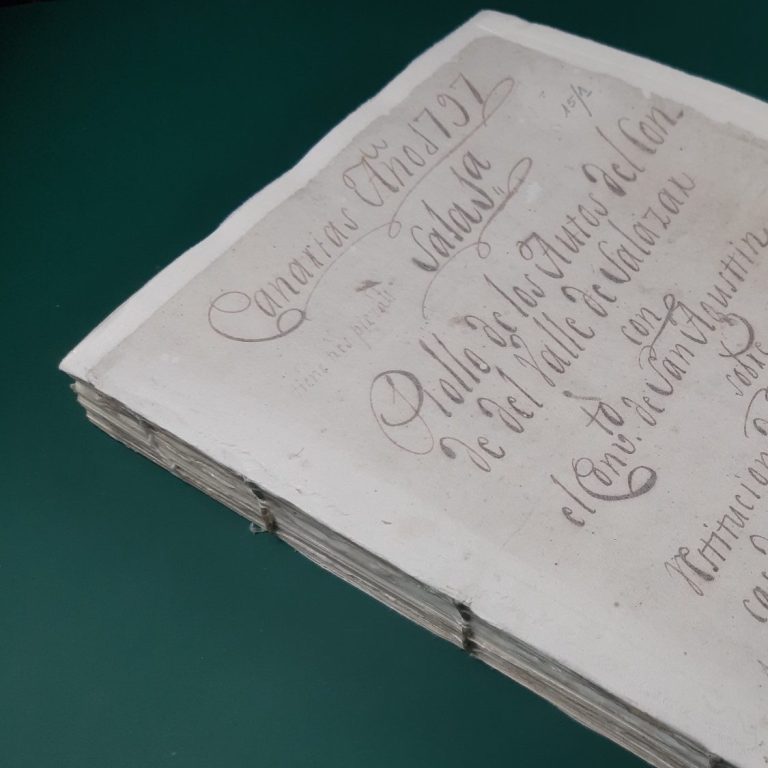 Canarias Año d 1797
15/1
Salas Jª
Rollo de los Autos del Con
de del Valle de Salazar
con
el Convto. de San Agustin
sobre
restitucion d